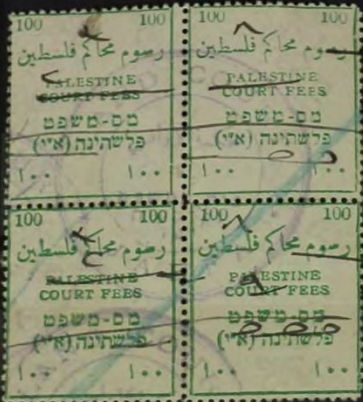 100 100
رسوم محاكم فلسطين
PALESTINE
COURT FEES
מס-משפט
פלשתינה (א״י)
١٠٠ ١٠٠
100 100
رسوم محاكم فلسطين
PALESTINE
COURT FEES
מס-משפט
פלשתינה (א״י)
١٠٠ ١٠٠
100 100
رسوم محاكم فلسطين
PALESTINE
COURT FEES
מס-משפט
פלשתינה (א״י)
١٠٠ ١٠٠
100 100
رسوم محاكم فلسطين
PALESTINE
COURT FEES
מס-משפט
פלשתינה (א״י)
١٠٠ ١٠٠